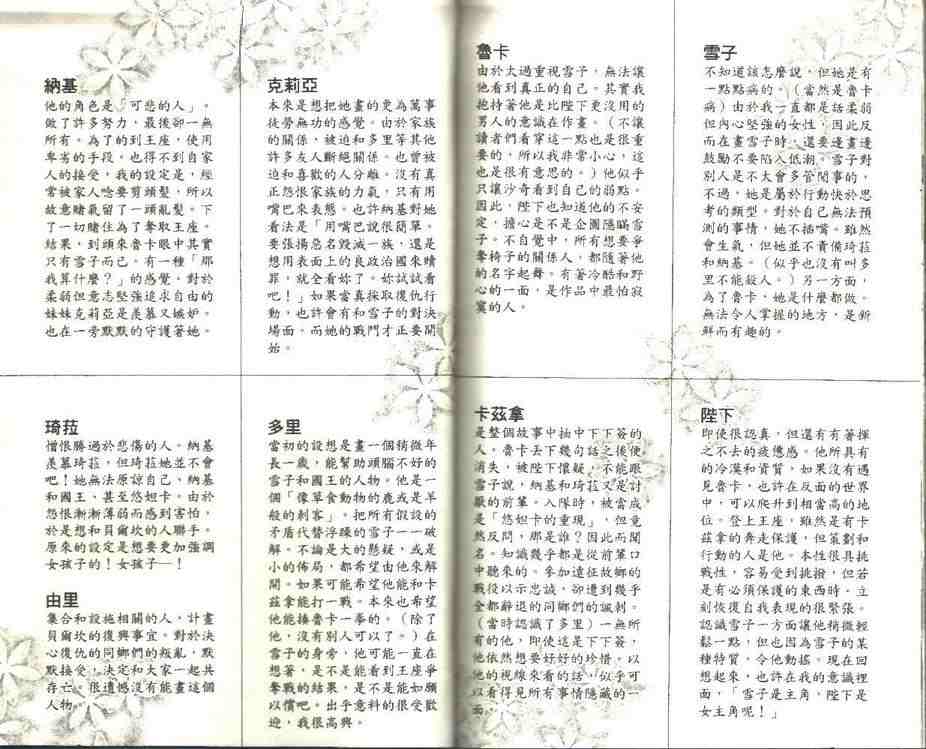 納基
他的角色是「可悲的人」。
做了許多努力，最後卻一無
所有。為了的到王座，使用
卑劣的手段，也得不到自家
人的接受，我的設定是，經
常被家人唸要剪頭髮，所以
故意賭氣留了一頭亂髮。下
了一切賭注為了奪取王座。
結果，到頭來魯卡眼中其實
只有雪子而已。有一種「那
我算什麼？」的感覺。對於
柔弱但意志堅強追求自由的
妹妹克莉亞是羨慕又嫉妒。
也在一旁默默的守護著她。
克莉亞
本來是想把她畫的更為萬事
徒勞無功的感覺。由於家族
的關係，被迫和多里等其他
許多友人斷絕關係。也曾被
迫和喜歡的人分離。沒有真
正怨恨家族的力氣，只有用
嘴巴來表態。也許納基對她
看法是「用嘴巴說很簡單。
要張揚惡名毀滅一族，還是
想用表面上的良政治國來贖
罪，就全看妳了。妳試試看
吧！」如果當真採取復仇行
動，也許會有和雪子的對決
場面，而她的戰鬥才正要開
始。
琦菈
憎恨勝過於悲傷的人。納基
羨慕琦菈，但琦菈她並不會
吧！她無法原諒自己、納基
和國王、甚至悠妲卡。由於
怨恨漸漸薄弱而感到害怕，
於是想和貝爾坎的人聯手。
原來的設定是想要更加強調
女孩子的！女孩子—！
由里
集合和設施相關的人，計畫
貝爾坎的復興事宜。對於決
心復仇的同鄉們的叛亂，默
默接受，決定和大家一起共
存亡。很遺憾沒有能畫這個
人物。
多里
當初的設想是畫一個稍微年
長一歲，能幫助頭腦不好的
雪子和國王的人物。他是一
個「像草食動物的鹿或是羊
般的刺客」。把所有假設的
矛盾代替浮躁的雪子一一破
解。不論是大的懸疑，或是
小的佈局，都希望由他來解
開。如果可能希望他能和卡
茲拿能打一戰。本來也希望
他能揍魯卡一拳的。（除了
他，沒有別人可以了。）在
雪子的身旁，他可能一直在
想著，是不是能看到王座爭
奪戰的結果，是不是能如願
以償吧。出乎意料的很受歡
迎，我很高興。
魯卡
由於太過重視雪子，無法讓
他看到真正的自己。其實我
抱持著他是比陛下更沒用的
男人的意識在作畫。（不讓
讀者們看穿這一點也是很重
要的，所以我非常小心，這
也是很有意思的。）他似乎
只讓沙奇看到自己的弱點。
因此，陛下也知道他的不安
定，擔心是不是企圖隱瞞雪
子。不自覺中，所有想要爭
奪椅子的關係人，都隨著他
的名字起舞。有著冷酷和野
心的一面，是作品中最怕寂
寞的人。
雪子
不知道該怎麼說，但她是有
一點點病的。（當然是魯卡
病）由於我一直都是話柔弱
但內心堅強的女性，因此反
而在畫雪子時，還要邊畫邊
鼓勵不要陷入低潮。雪子對
別人是不太會多管閒事的，
不過，她是屬於行動快於思
考的類型。對於自己無法預
測的事情，她不插嘴。雖然
會生氣，但她並不責備琦菈
和納基。（似乎也沒有叫多
里不能殺人。）另一方面，
為了魯卡，她是什麼都做。
無法令人掌握的地方，是新
鮮而有趣的。
卡茲拿
是整個故事中抽中下下簽的
人。魯卡丟下幾句話之後便
消失，被陛下懷疑，不能跟
雪子說，納基和琦菈又是討
厭的前輩。入隊時，被當成
是「悠妲卡的重現」，但竟
然反問，那是誰？因此而聞
名。知識幾乎都是從前輩口
中聽來的。參加遠征故鄉的
戰役以示忠誠，卻遭到幾乎
全都辭退的同鄉們的諷刺。
（當時認識了多里）一無所
有的他，即使這是下下簽，
他依然想要好好的珍惜。以
他的視線來看的話，似乎可
以看得見所有事情隱藏的一
面。
陛下
即使很認真，但還有有著揮
之不去的疲憊感。他所具有
的冷漠和資質，如果沒有遇
見魯卡，也許在反面的世界
中，可以爬升到相當高的地
位。登上王座，雖然是有卡
茲拿的奔走保護，但策劃和
行動的人是他。本性很具挑
戰性，容易受到挑撥，但若
是有必須保護的東西時，立
刻恢復自我表現的很緊張。
認識雪子一方面讓他稍微輕
鬆一點，但也因為雪子的某
種特質，令他動搖。現在回
想起來，也許在我的意識裡
面，「雪子是主角，陛下是
女主角呢！」